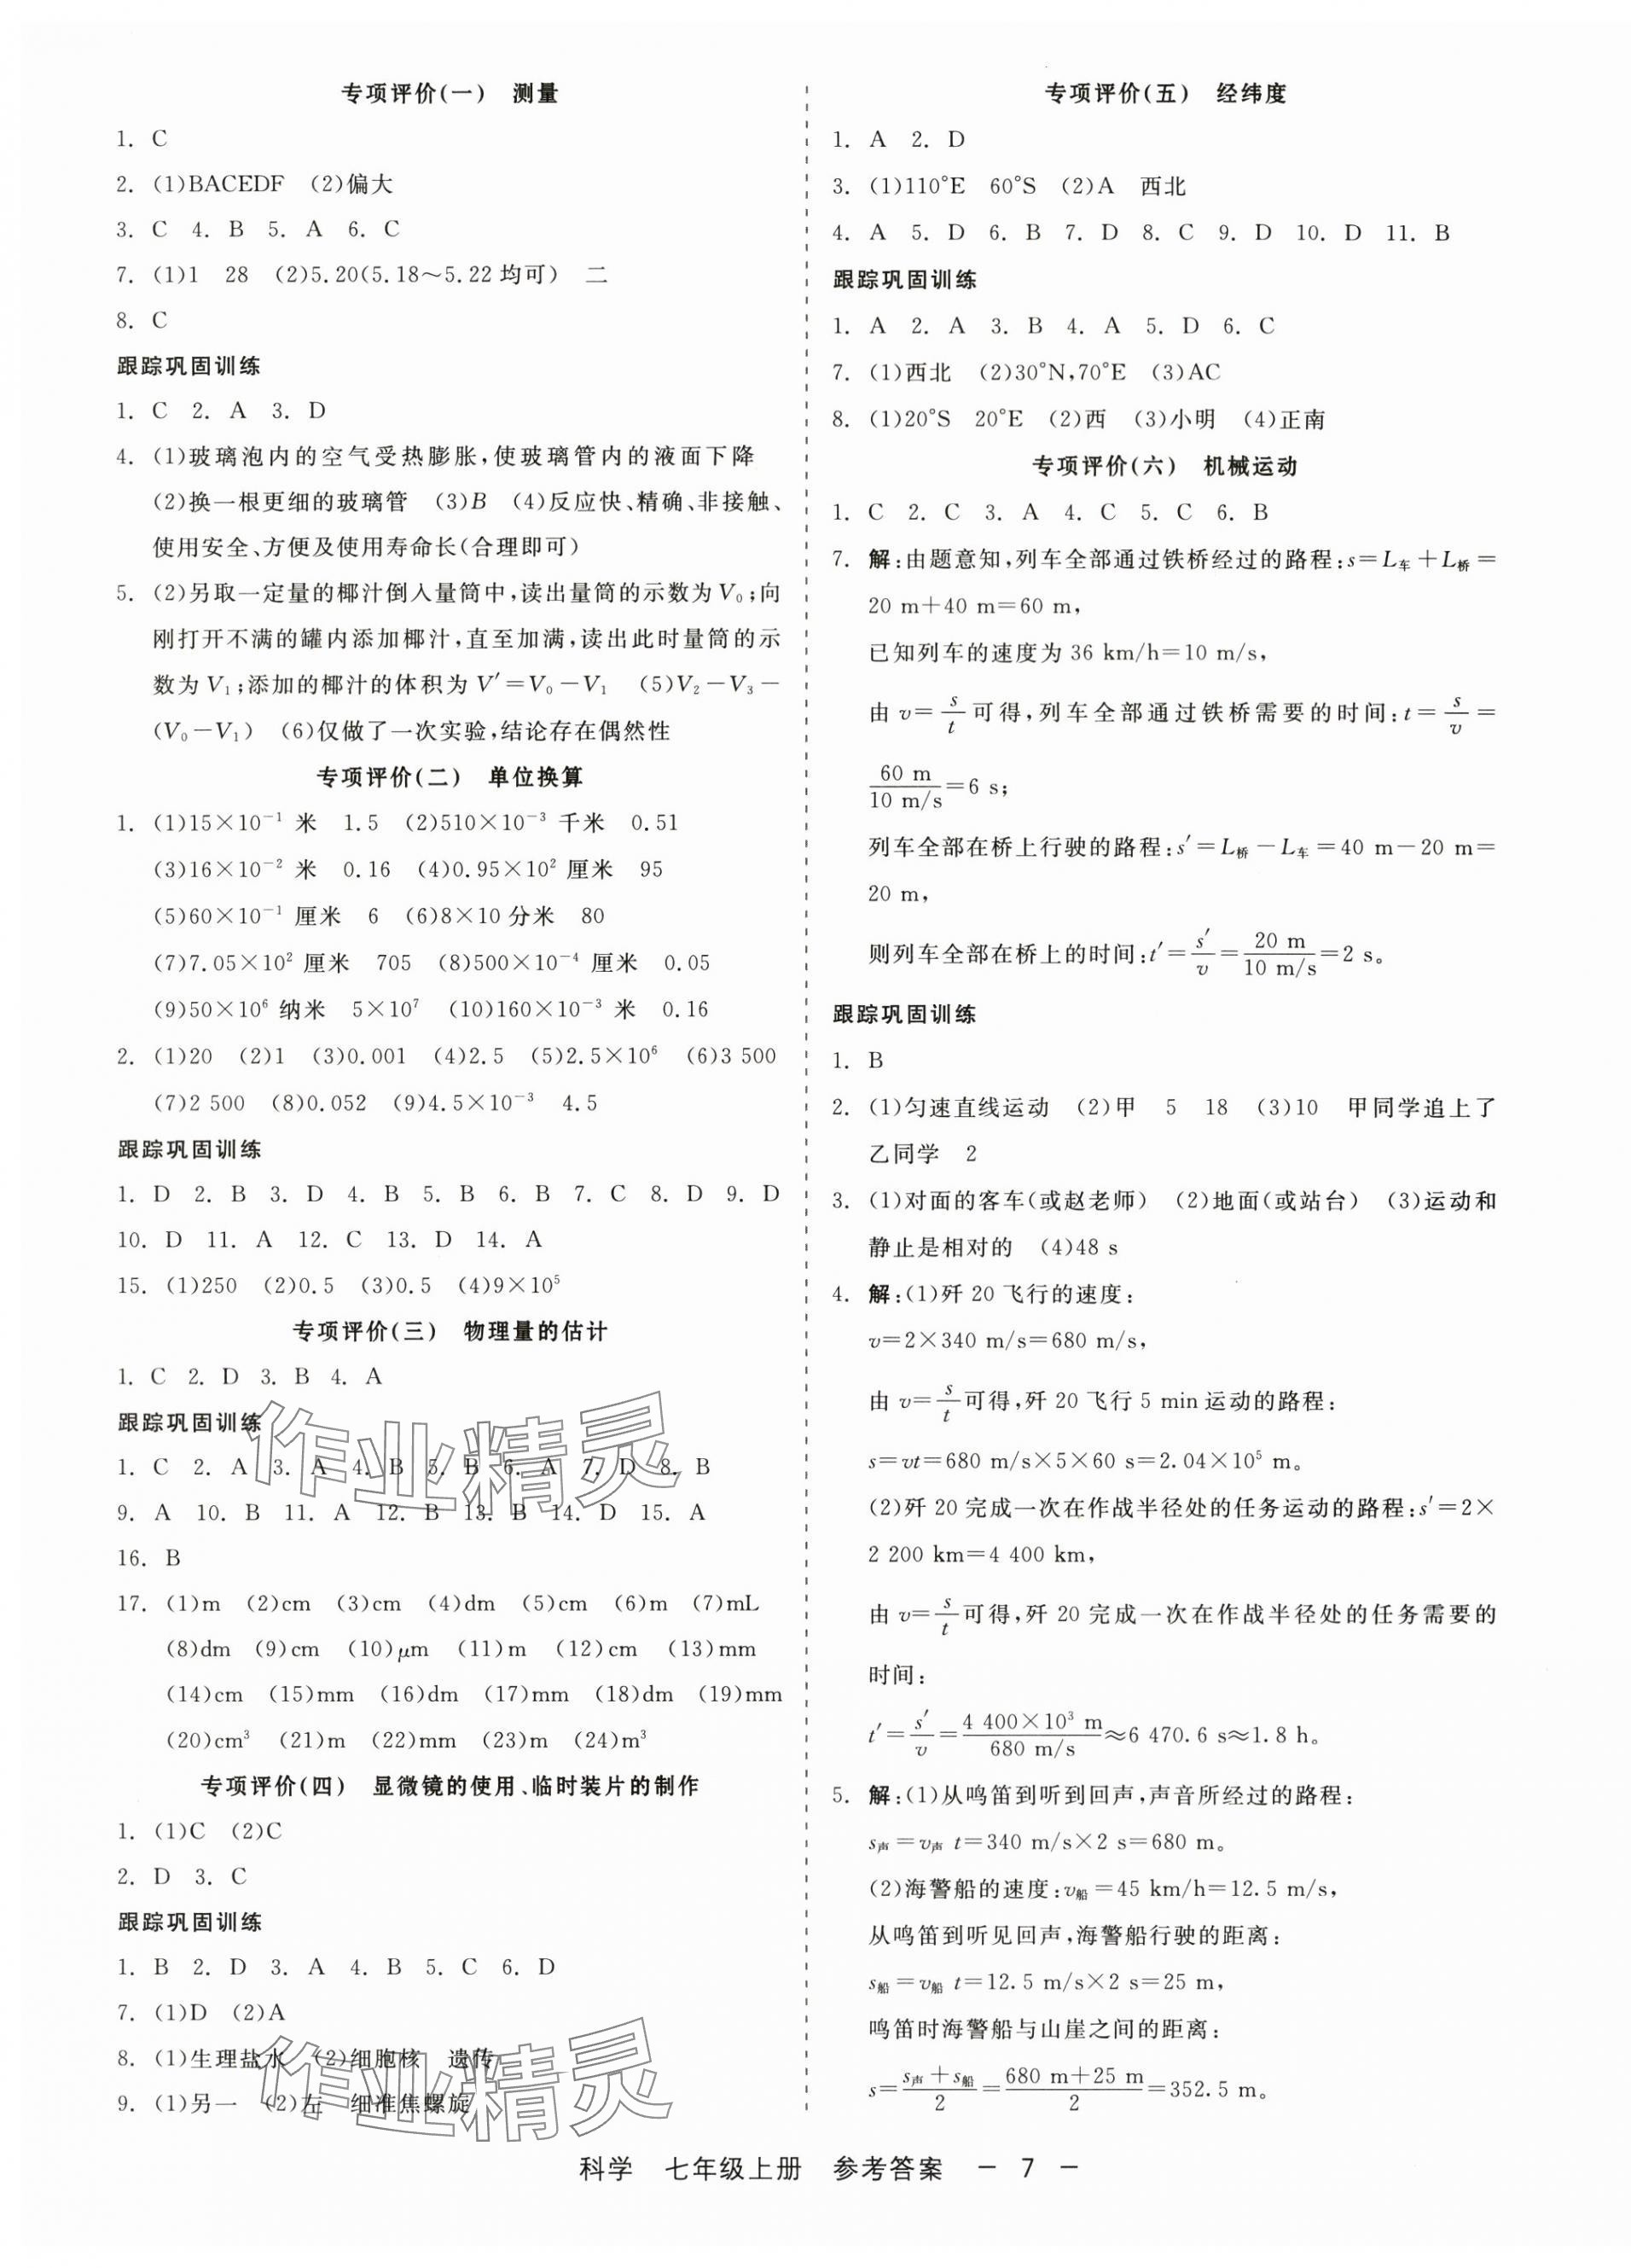 专项评价(一) 测量
1. C
2. (1)BACEDF (2)偏大
3. C 4. B 5. A 6. C
7. (1)1 28 (2)5.20(5.18～5.22均可) 二
8. C
跟踪巩固训练
1. C 2. A 3. D
4. (1)玻璃泡内的空气受热膨胀,使玻璃管内的液面下降
(2)换一根更细的玻璃管 (3)B (4)反应快、精确、非接触、
使用安全、方便及使用寿命长(合理即可)
5. (2)另取一定量的椰汁倒入量筒中,读出量筒的示数为V₀;向
刚打开不满的罐内添加椰汁,直至加满,读出此时量筒的示
数为V₁;添加的椰汁的体积为V′=V₀−V₁ (5)V₂−V₃−
(V₀−V₁) (6)仅做了一次实验,结论存在偶然性
专项评价(二) 单位换算
1. (1)15×10⁻¹ 米 1.5 (2)510×10⁻³ 千米 0.51
(3)16×10⁻² 米 0.16 (4)0.95×10² 厘米 95
(5)60×10⁻¹ 厘米 6 (6)8×10 分米 80
(7)7.05×10² 厘米 705 (8)500×10⁻⁴ 厘米 0.05
(9)50×10⁶ 纳米 5×10⁷ (10)160×10⁻³ 米 0.16
2. (1)20 (2)1 (3)0.001 (4)2.5 (5)2.5×10⁶ (6)3 500
(7)2 500 (8)0.052 (9)4.5×10⁻³ 4.5
跟踪巩固训练
1. D 2. B 3. D 4. B 5. B 6. B 7. C 8. D 9. D
10. D 11. A 12. C 13. D 14. A
15. (1)250 (2)0.5 (3)0.5 (4)9×10⁵
专项评价(三) 物理量的估计
1. C 2. D 3. B 4. A
跟踪巩固训练
1. C 2. A 3. A 4. B 5. B 6. A 7. D 8. B
9. A 10. B 11. A 12. B 13. B 14. D 15. A
16. B
17. (1)m (2)cm (3)cm (4)dm (5)cm (6)m (7)mL
(8)dm (9)cm (10)μm (11)m (12)cm (13)mm
(14)cm (15)mm (16)dm (17)mm (18)dm (19)mm
(20)cm³ (21)m (22)mm (23)m (24)m³
专项评价(四) 显微镜的使用、临时装片的制作
1. (1)C (2)C
2. D 3. C
跟踪巩固训练
1. B 2. D 3. A 4. B 5. C 6. D
7. (1)D (2)A
8. (1)生理盐水 (2)细胞核 遗传
9. (1)另一 (2)左 细准焦螺旋
作业精灵
作业精灵
专项评价(五) 经纬度
1. A 2. D
3. (1)110°E 60°S (2)A 西北
4. A 5. D 6. B 7. D 8. C 9. D 10. D 11. B
跟踪巩固训练
1. A 2. A 3. B 4. A 5. D 6. C
7. (1)西北 (2)30°N,70°E (3)AC
8. (1)20°S 20°E (2)西 (3)小明 (4)正南
专项评价(六) 机械运动
1. C 2. C 3. A 4. C 5. C 6. B
7. 解:由题意知,列车全部通过铁桥经过的路程:s=L车+L桥=
20 m+40 m=60 m,
已知列车的速度为36 km/h=10 m/s,
由 v=s/t 可得,列车全部通过铁桥需要的时间:t=s/v=
60 m/10 m/s=6 s;
列车全部在桥上行驶的路程:s′=L桥−L车=40 m−20 m=
20 m,
则列车全部在桥上的时间:t′=s′/v=20 m/10 m/s=2 s。
跟踪巩固训练
1. B
2. (1)匀速直线运动 (2)甲 5 18 (3)10 甲同学追上了
乙同学 2
3. (1)对面的客车(或赵老师) (2)地面(或站台) (3)运动和
静止是相对的 (4)48 s
4. 解:(1)歼20飞行的速度:
v=2×340 m/s=680 m/s,
由 v=s/t 可得,歼20飞行5 min运动的路程:
s=vt=680 m/s×5×60 s=2.04×10⁵ m。
(2)歼20完成一次在作战半径处的任务运动的路程:s′=2×
2 200 km=4 400 km,
由 v=s/t 可得,歼20完成一次在作战半径处的任务需要的
时间:
t′=s′/v=4 400×10³ m/680 m/s≈6 470.6 s≈1.8 h。
5. 解:(1)从鸣笛到听到回声,声音所经过的路程:
s声=v声 t=340 m/s×2 s=680 m。
(2)海警船的速度:v船=45 km/h=12.5 m/s,
从鸣笛到听见回声,海警船行驶的距离:
s船=v船 t=12.5 m/s×2 s=25 m,
鸣笛时海警船与山崖之间的距离:
s=s声+s船/2=680 m+25 m/2=352.5 m。
科学 七年级上册 参考答案 — 7 —